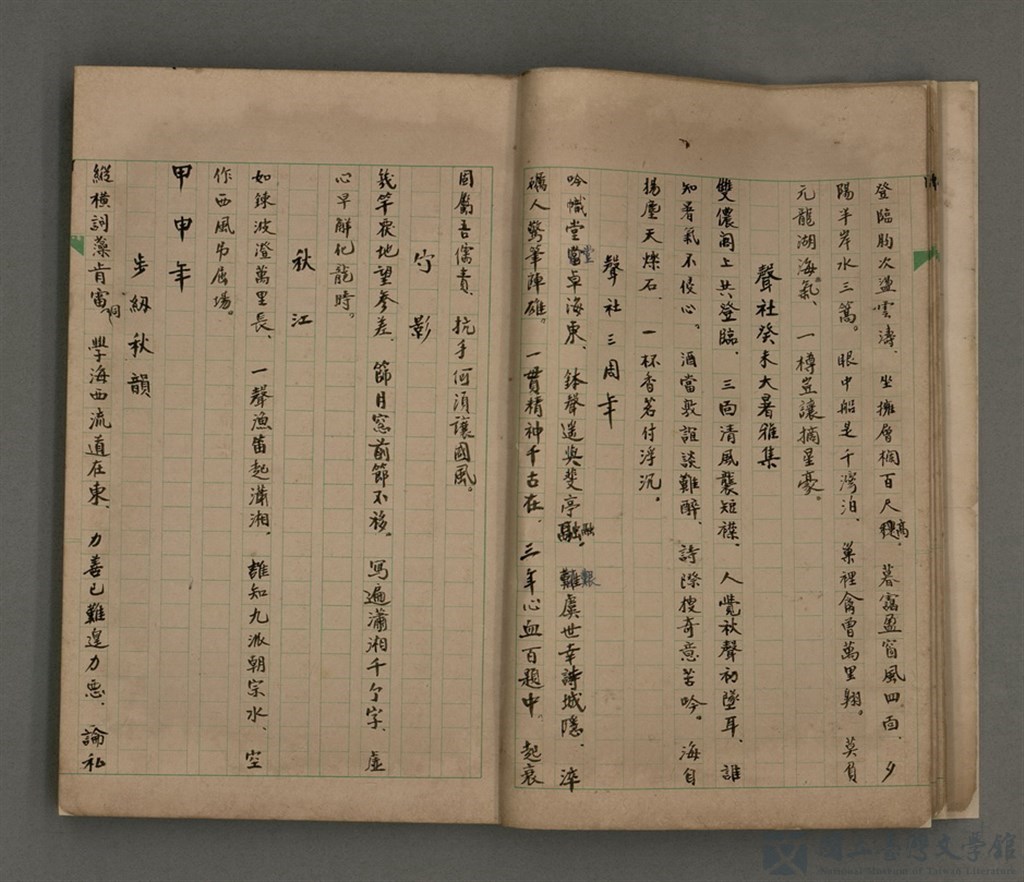 登臨胸次盪雲濤、坐擁層欄百尺高、暮靄盈窗風四面、夕
陽半岸水三篙。眼中船是千灣泊、巢裡禽曾萬里翱。莫負
元龍湖海氣、一樽豈讓摘星豪。
聲社癸未大暑雅集
雙儂閣上共登臨、三面清風襲短襟、人覺秋聲初墜耳、誰
知暑氣不侵心。酒當敦誼談難醉、詩際搜奇意苦吟。海自
揚塵天爍石、一杯香茗付浮沉。
聲社三周年
吟幟堂堂卓海東、鉢聲遙與斐亭融。艱虞世幸詩城隱、淬
礪人驚筆陣雄。一貫精神千古在、三年心血百題中。起衰
固屬吾儒責、抗手何須讓國風。
竹影
幾竿痕地望參差、節目窓前節不移。写遍瀟湘千个字、虛
心早解化龍時。
秋江
如鍊波澄萬里長、一聲漁笛起瀟湘。誰知九派朝宗水、空
作西風弔屈場。
甲申年
步紉秋韻
縱橫詞藻肯雷同、學海西流道在東、力善已難遑力惡、論私
國立臺灣文學館
National Museum of Taiwan Literature